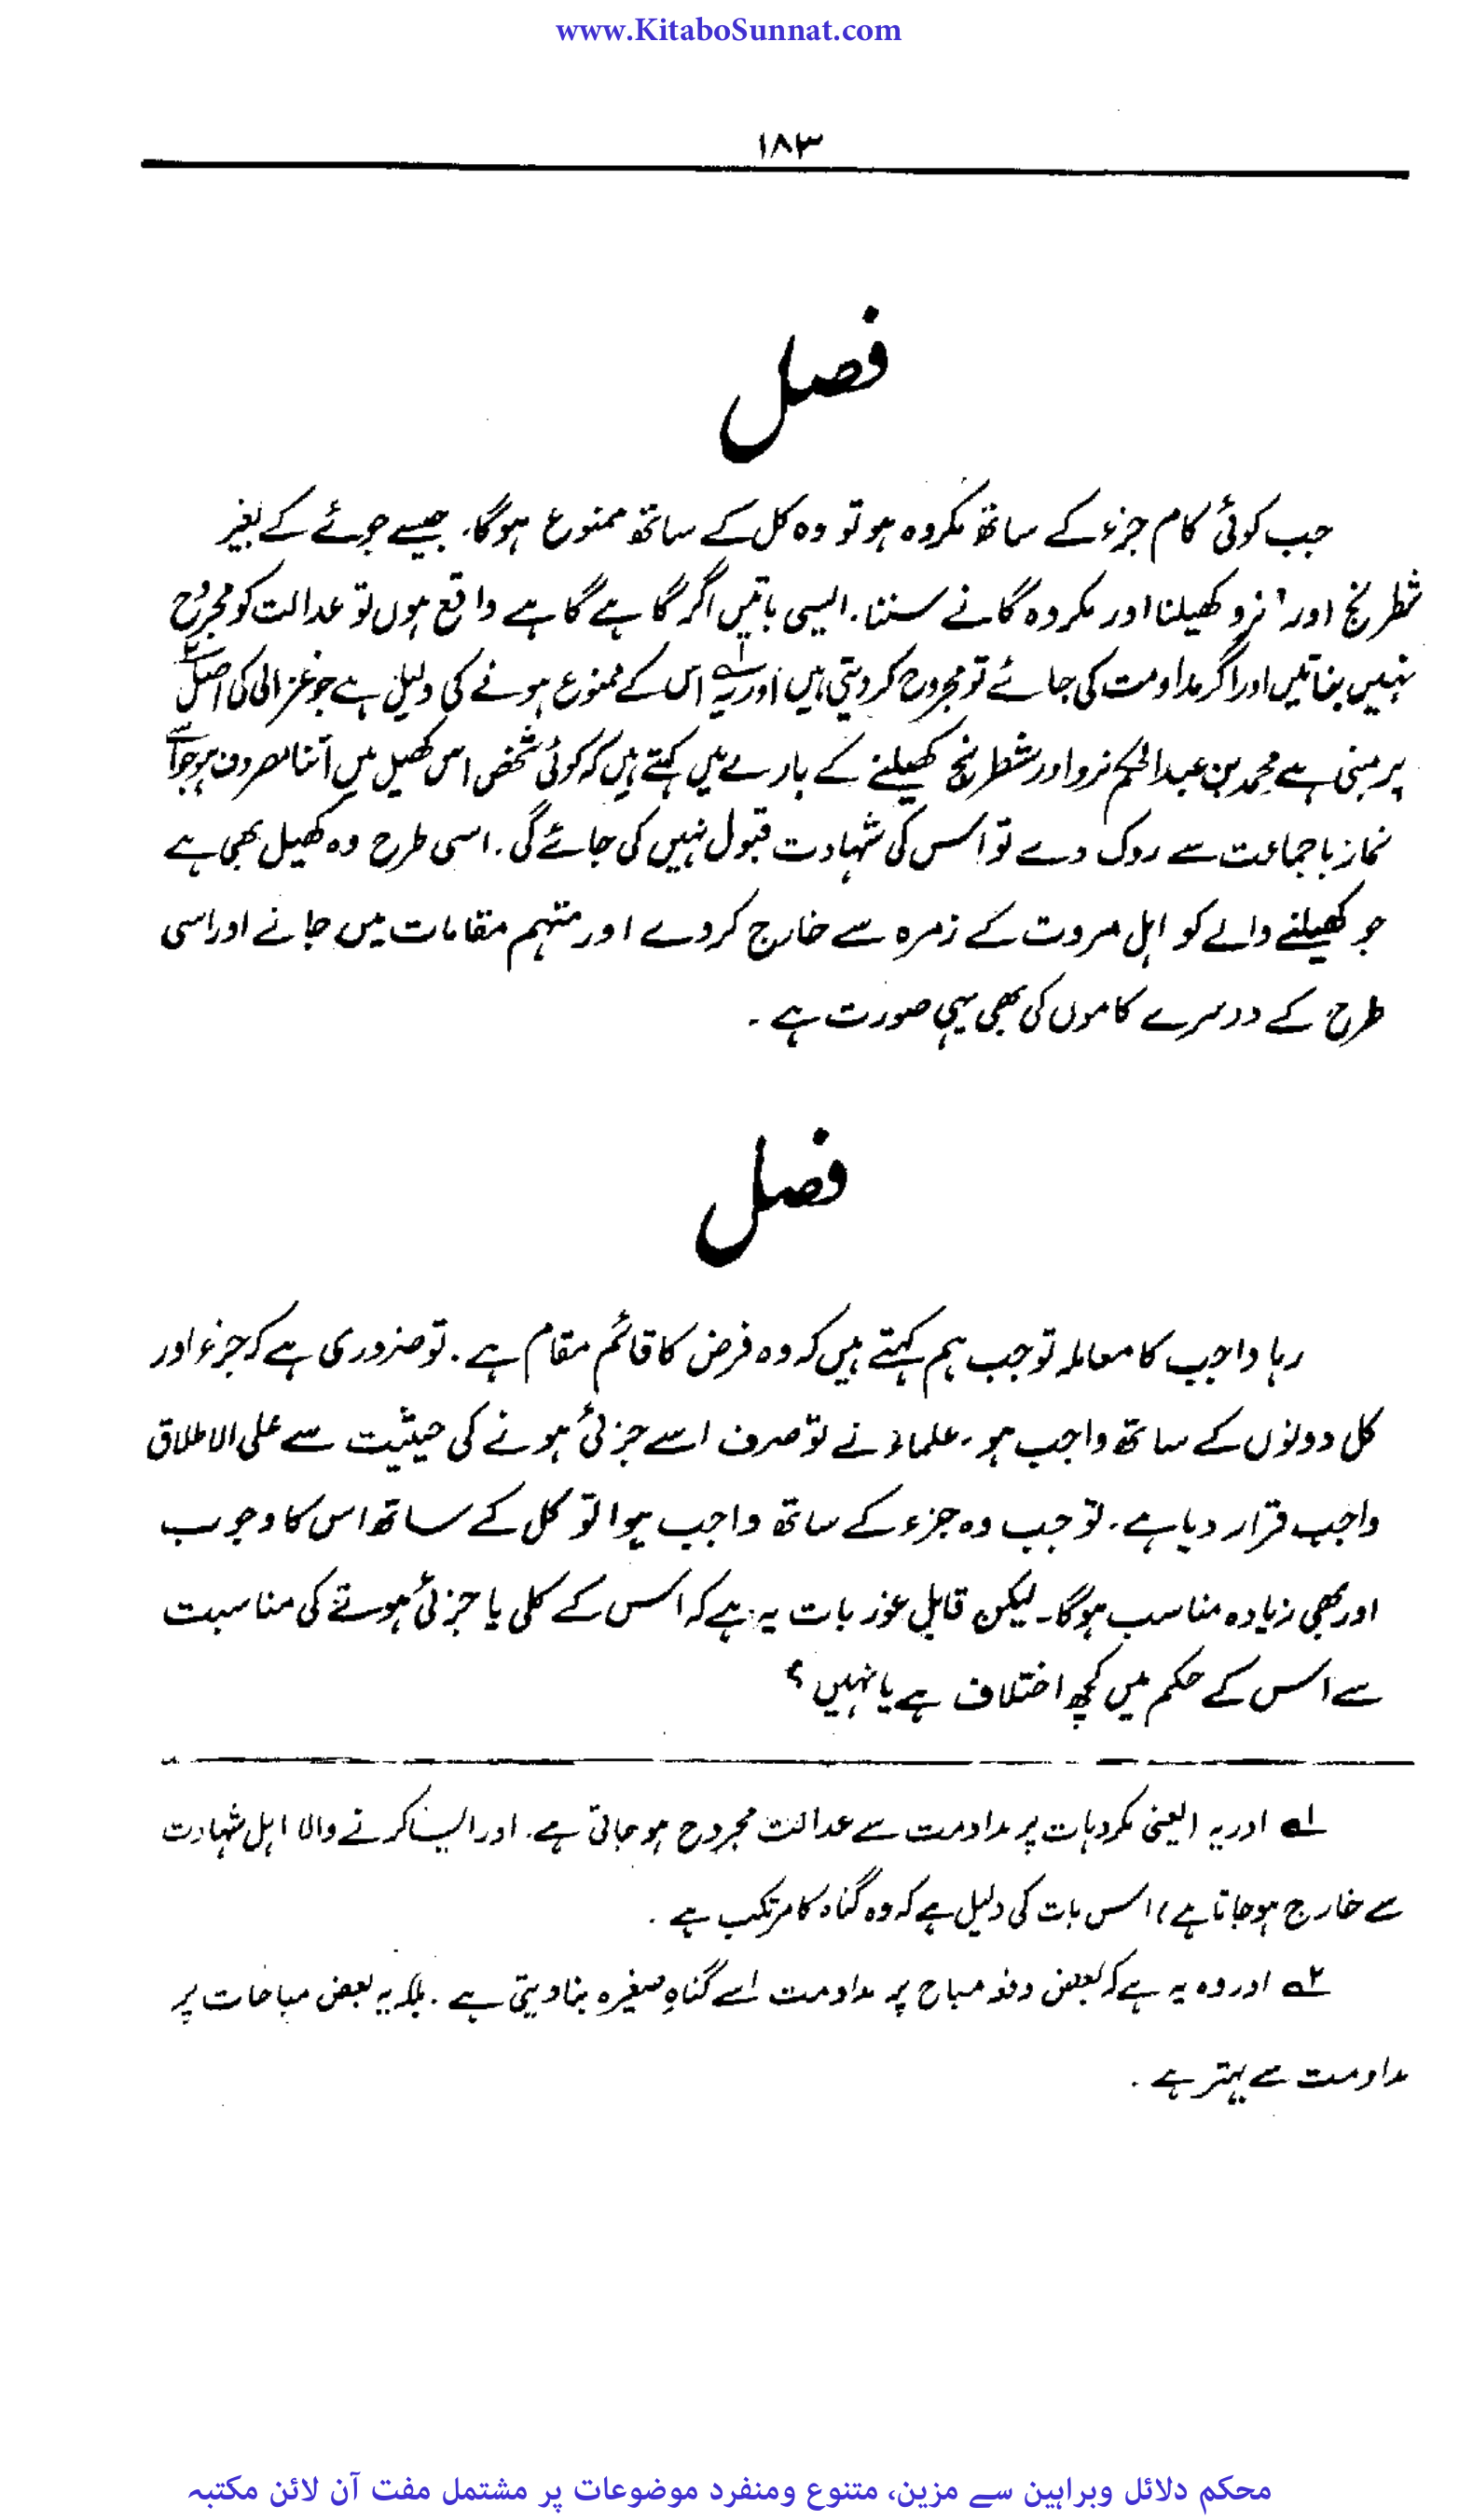 www.KitaboSunnat.com
۱۸۳
فصل
جب کوئی کام جزء کے ساتھ مکروہ ہو تو وہ کل کے ساتھ ممنوع ہوگا۔ جیسے جوئے کے بغیر
شطرنج اور نرد کھیلنا اور مکروہ گانے سننا۔ ایسی باتیں اگر گاہے گاہے واقع ہوں تو عدالت کو مجروح
نہیں بناتیں اور اگر مداومت کی جائے تو مجروح کر دیتی ہیں اور یہ۱؎ اس کے ممنوع ہونے کی دلیل ہے جو غزالی کی اصل۲؎
پر مبنی ہے محمد بن عبدالحکم نرد اور شطرنج کھیلنے کے بارے میں کہتے ہیں کہ کوئی شخص اس کھیل میں اتنا مصروف ہو جو اُسے
نماز باجماعت سے روک دے تو اس کی شہادت قبول نہیں کی جائے گی۔ اسی طرح وہ کھیل بھی ہے
جو کھیلنے والے کو اہل مروت کے زمرہ سے خارج کر دے اور متہم مقامات میں جانے اور اسی
طرح کے دوسرے کاموں کی بھی یہی صورت ہے۔
فصل
رہا واجب کا معاملہ تو جب ہم کہتے ہیں کہ وہ فرض کا قائم مقام ہے۔ تو ضروری ہے کہ جزء اور
کل دونوں کے ساتھ واجب ہو۔ علماء نے تو صرف اسے جزئی ہونے کی حیثیت سے علی الاطلاق
واجب قرار دیا ہے۔ تو جب وہ جزء کے ساتھ واجب ہوا تو کل کے ساتھ اس کا وجوب
اور بھی زیادہ مناسب ہوگا۔ لیکن قابل غور بات یہ ہے کہ اس کے کلی یا جزئی ہونے کی مناسبت
سے اس کے حکم میں کچھ اختلاف ہے یا نہیں؟
۱؎ اور یہ (یعنی مکروہات پر مداومت سے عدالت مجروح ہو جاتی ہے۔ اور ایسا کرنے والا اہل شہادت
سے خارج ہو جاتا ہے) اس بات کی دلیل ہے کہ وہ گناہ کا مرتکب ہے۔
۲؎ اور وہ یہ ہے کہ بعض دفعہ مباح پر مداومت اسے گناہِ صغیرہ بنا دیتی ہے۔ بلکہ یہ بعض مباحات پر
مداومت سے بہتر ہے۔
محکم دلائل وبراہین سے مزین، متنوع ومنفرد موضوعات پر مشتمل مفت آن لائن مکتبہ